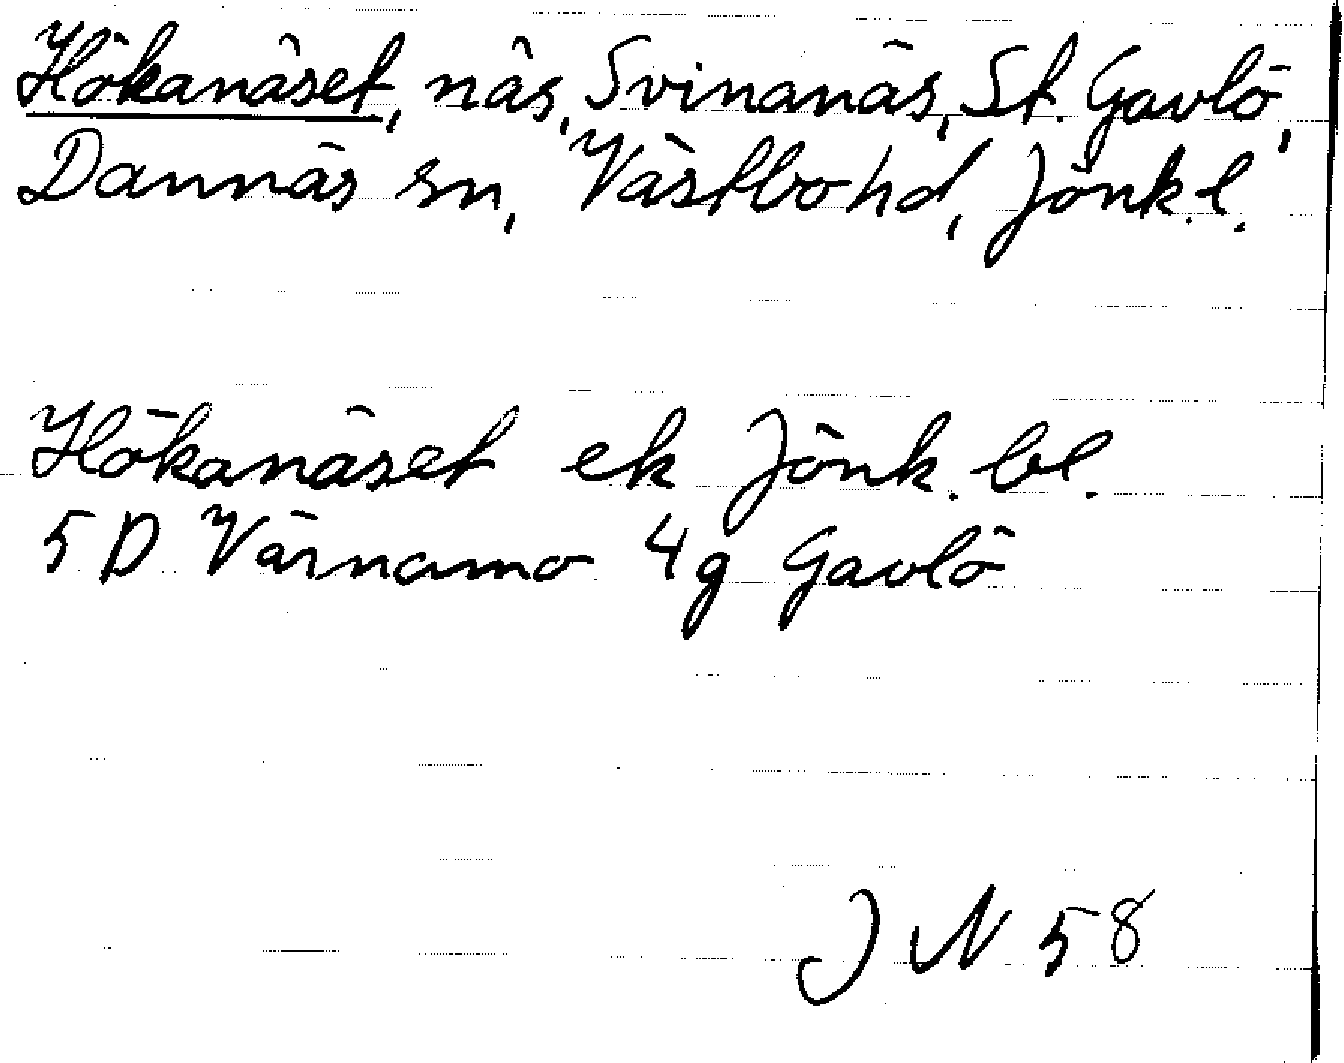 Hökanäset, näs, Svinanäs, St. Gavlö,
Dannäs sn, Västbo hd, Jönk.l.
Hökanäset ek Jönk. bl.
5 D Värnamo 4g Gavlö
J N 58